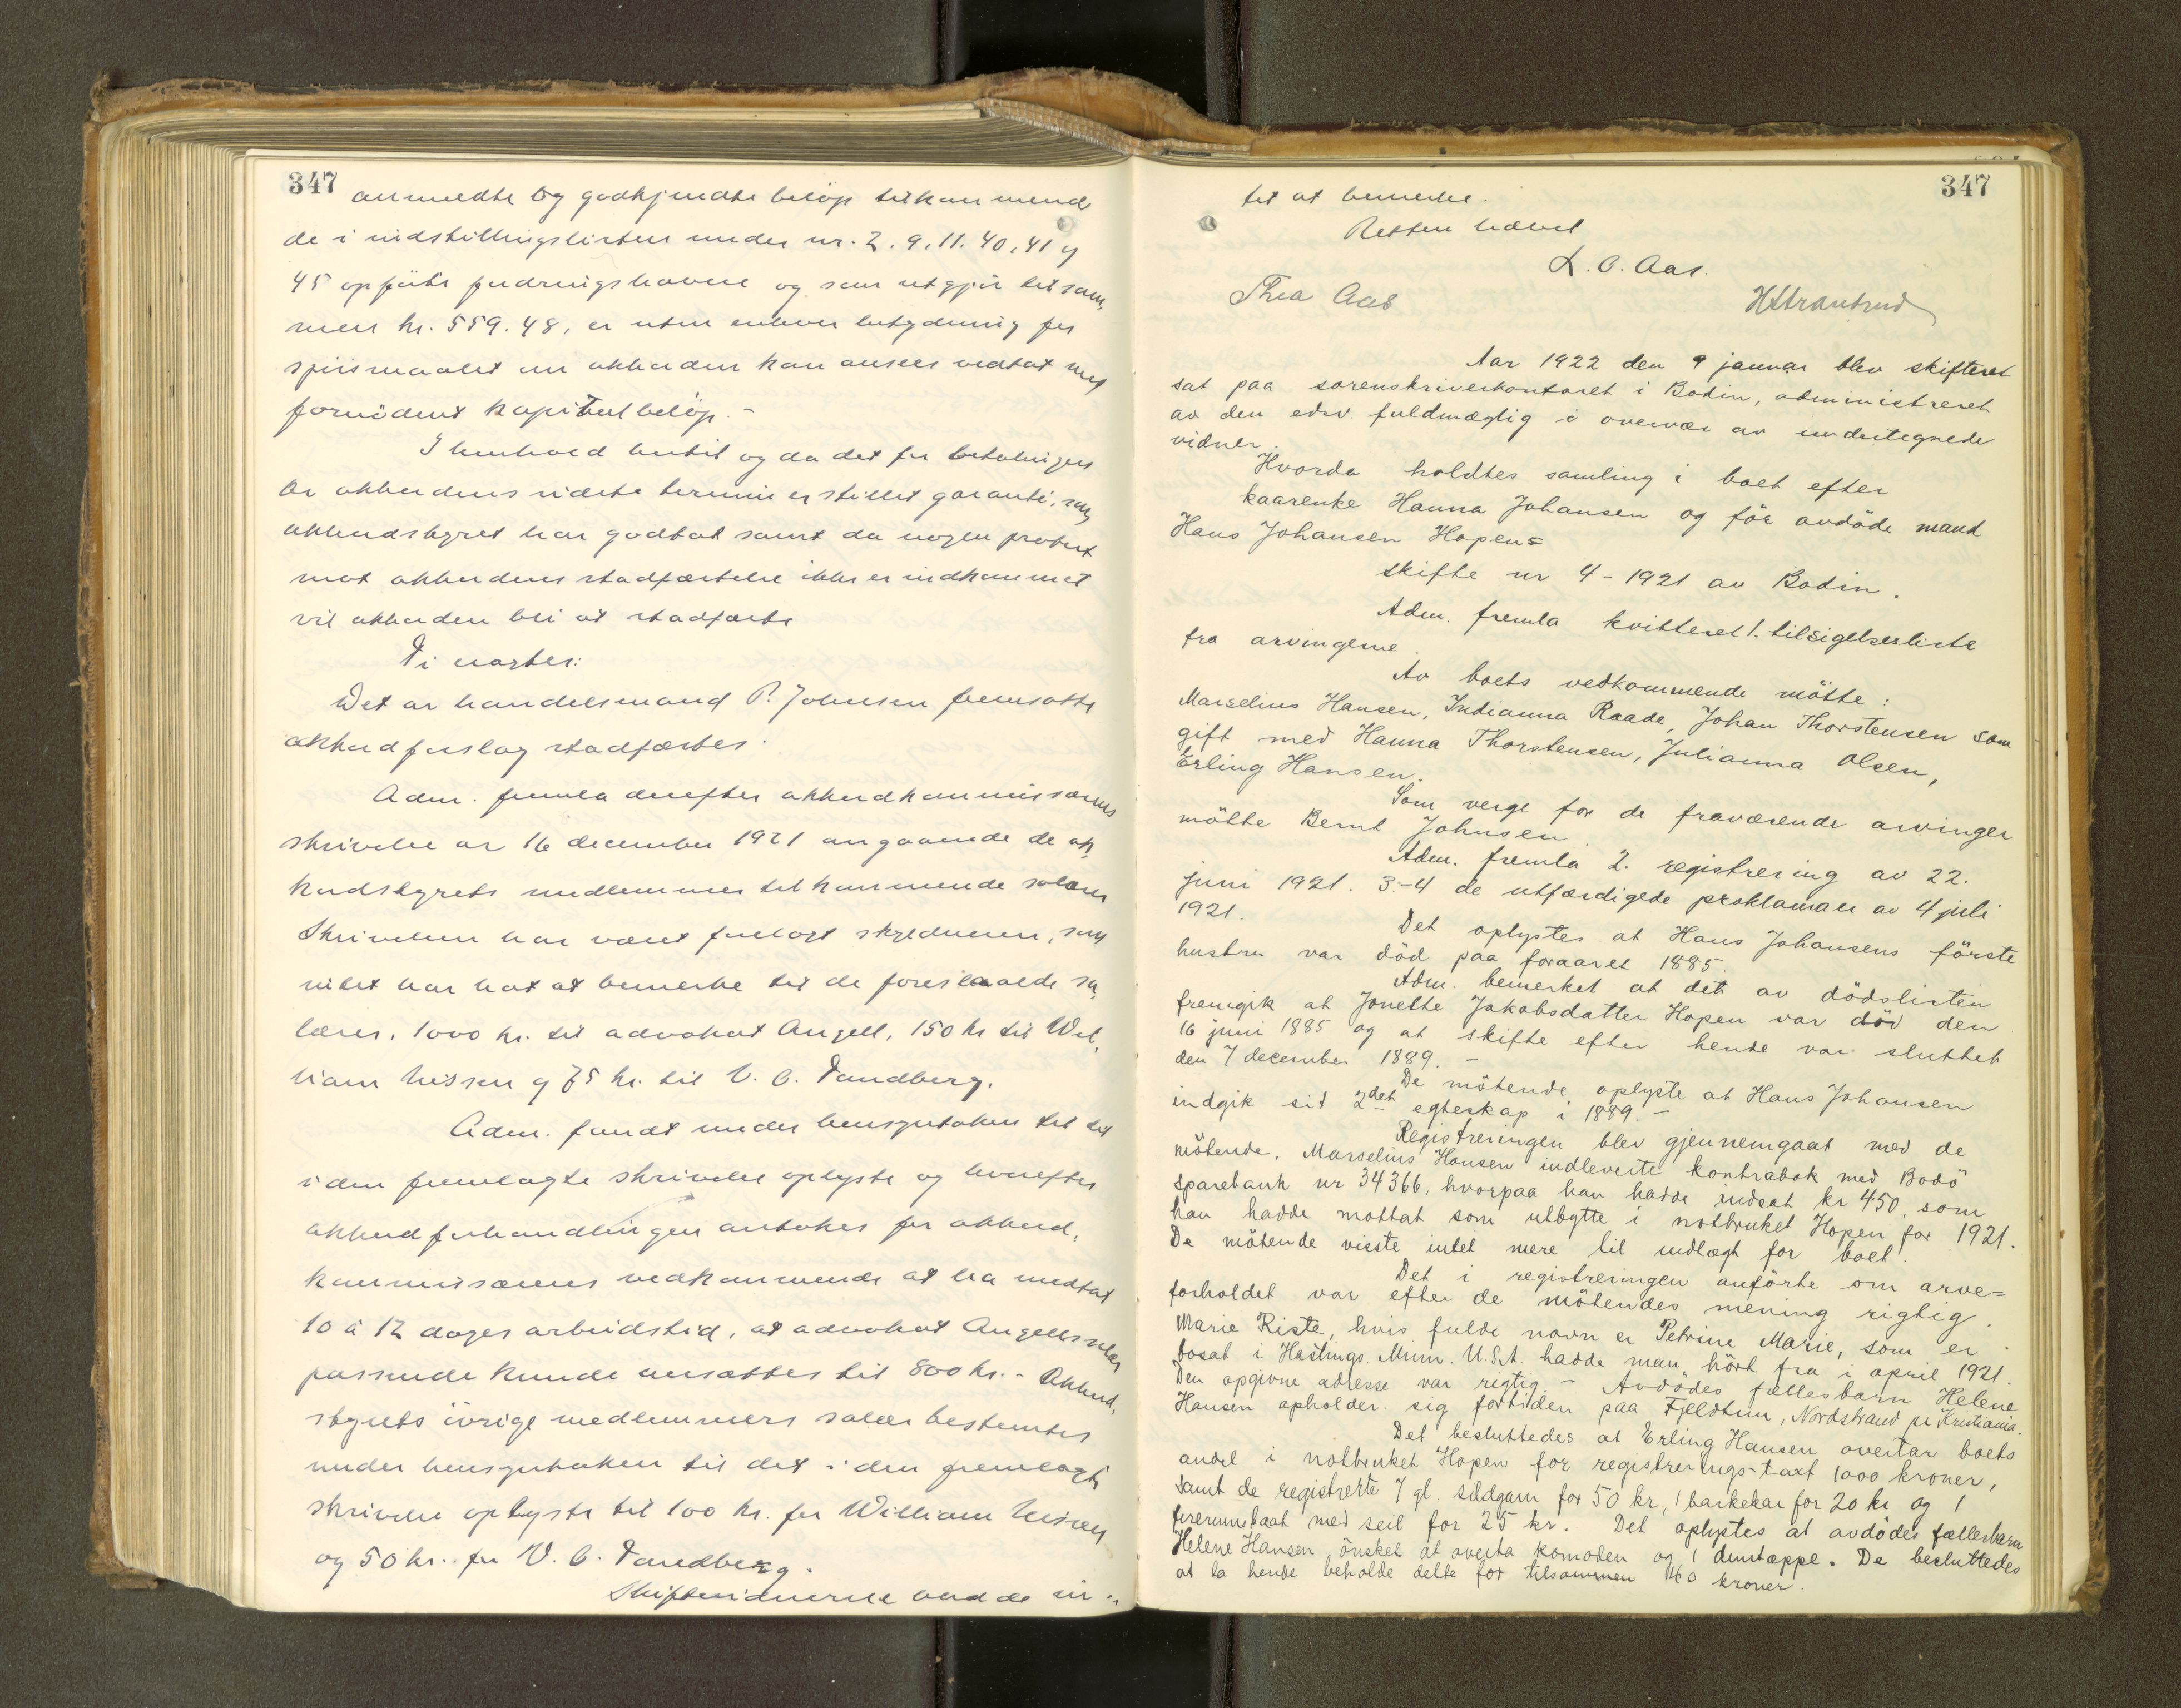 347
anmeldte og godkjendte beløp tilkommend
de i indstillingslisten under nr. 2. 9. 11. 40, 41 og
45 opførte fordringshavere og som utgjør tilsam,
men kr. 559.48, er uten enhver betydning for
spørsmaalet om akkorden kan ansees vedtat med
fornødent kapitalbeløp. -
I henhold hertil og da det for betalingen
av akkordens sidste termin er stillet garanti, som
akkordstyret har godtat samt da nogen protest
mot akkordens stadfæstelse ikke er indkommet
vil akkorden bli at stadfæste
Ti eragtes:
Det av handelsmand P. Johnsen fremsatte
akkordforslag stadfæstes.
Adm. fremla derefter akkordkommissærens
skrivelse av 16 december 1921 angaaende de ak,
kordstyrets medlemmer tilkommende salærer
Skrivelsen har været forelagt skyldneren, som
intet har hat at bemerke til de foreslaaede sa,
lærer, 1000 kr. til advokat Angell, 150 kr til Wil,
liam Nissen og 75 kr. til V. C. Sandberg.
Adm. fandt under hensyntaken til det
i den fremlagte skrivelse oplyste og hvorefter
akkordforhandlingen antakes for akkord,
kommissærens vedkommende at ha medtat
10 à 12 dages arbeidstid, at advokat Angells salær
passende kunde ansættes til 800 kr. - Akkord,
styrets øvrige medlemmers salær bestemtes
under hensyntaken til det i den fremlagte
skrivelse oplyste til 100 kr. for William Nissen
og 50 kr. for V. C. Sandberg.
Skiftevidnerne hadde in-
347
tet at bemerke.
Retten hævet
L. C. Aas.
Thea Aas
Aar 1922 den 9 januar blev skifteret
sat paa sorenskriverkontoret i Bodin, administreret
av den edsv. fuldmægtig i overvær av undertegnede
vidner.
Hvorda holdtes samling i boet efter
kaarenke Hanna Johansen og før avdøde mand
Hans Johansen Hopen=
skifte nr 4 - 1921 av Bodin.
Adm. fremla kvitteret 1. tilsigelsesliste
fra arvingerne.
Av boets vedkommende møtte:
Marselius Hansen, Indianna Raade, Johan Thorstensen som
gift med Hanna Thorstensen, Julianna Olsen,
Erling Hansen.
Som verge for de fraværende arvinger
møtte Bernt Johnsen
Adm. fremla 2. registrering av 22.
juni 1921. 3-4 de utfærdigede proklamaer av 4 juli
1921.
Det oplystes at Hans Johansens første
hustru var død paa foraaret 1885.
Adm. bemerket at det av dødslisten
fremgik at Jonette Jakobsdatter Hopen var død den
16 juni 1885 og at skifte efter hende var sluttet
den 7 december 1889. -
De møtende oplyste at Hans Johansen
indgik sit 2det egteskap i 1889. -
Registreringen blev gjennemgaat med de
møtende. Marselius Hansen indleverte kontrabok med Bodø
sparebank nr 34366, hvorpaa han hadde indsat kr 450, som
han hadde mottat som utbytte i notbruket Hopen for 1921.
De møtende visste intet mere til indlægt for boet.
Det i registreringen anførte om arve=
forholdet var efter de møtendes mening rigtig.
Marie Riste, hvis fulde navn er Petrine Marie, som er
bosat i Hastings. Minn. U.S.A. hadde man hørt fra i april 1921.
Den opgivne adresse var rigtig - Avdødes fællesbarn Helene
Hansen opholder sig fortiden paa Fjeldtun, Nordstrand pr Kristiania.
Det besluttedes at Erling Hansen overtar boets
andel i notbruket Hopen for registrerings-taxt 1000 kroner,
samt de registrerte 7 gl. sildgarn for 50 kr, 1 barkekar for 20 kr og 1
firerumsbaat med seil for 25 kr. Det oplystes at avdødes fællesbarn
Helene Hansen ønsket at overta komoden og 1 duntæppe. De besluttedes
at la hende beholde dette for tilsammen 40 kroner.